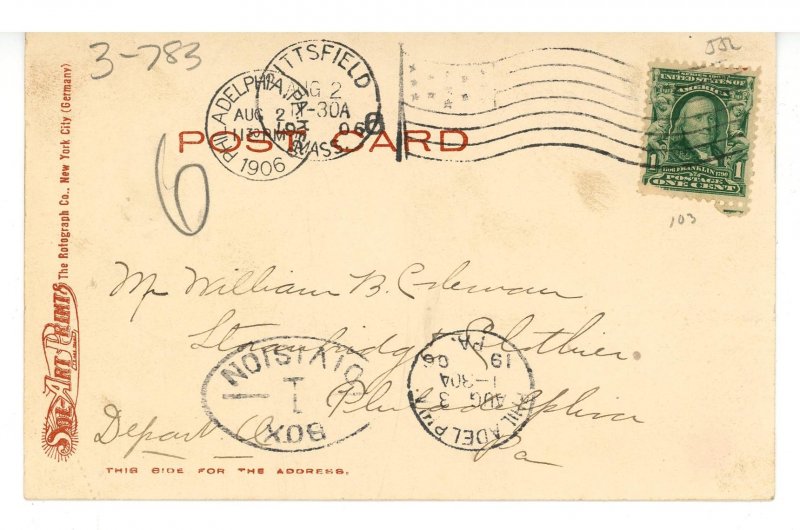 3-783
552
PITTSFIELD
AUG 2
11-30A
06
MASS.
6
PHILADELPHIA, PA.
AUG 2
1130PM
1906
POST CARD
SERIES 1902
UNITED STATES OF AMERICA
1 1
1706 FRANKLIN 1790
POSTAGE
ONE CENT
103
6
Mr William B. Coleman
Strawbridge & Clothier.
Philadelphia
Depart.
Pa
BOX
1
DIVISION
PHILADELPHIA
AUG 3
1-30A
06
19
PA.
THIS SIDE FOR THE ADDRESS.
Sol-Art Prints
The Rotograph Co., New York City (Germany)